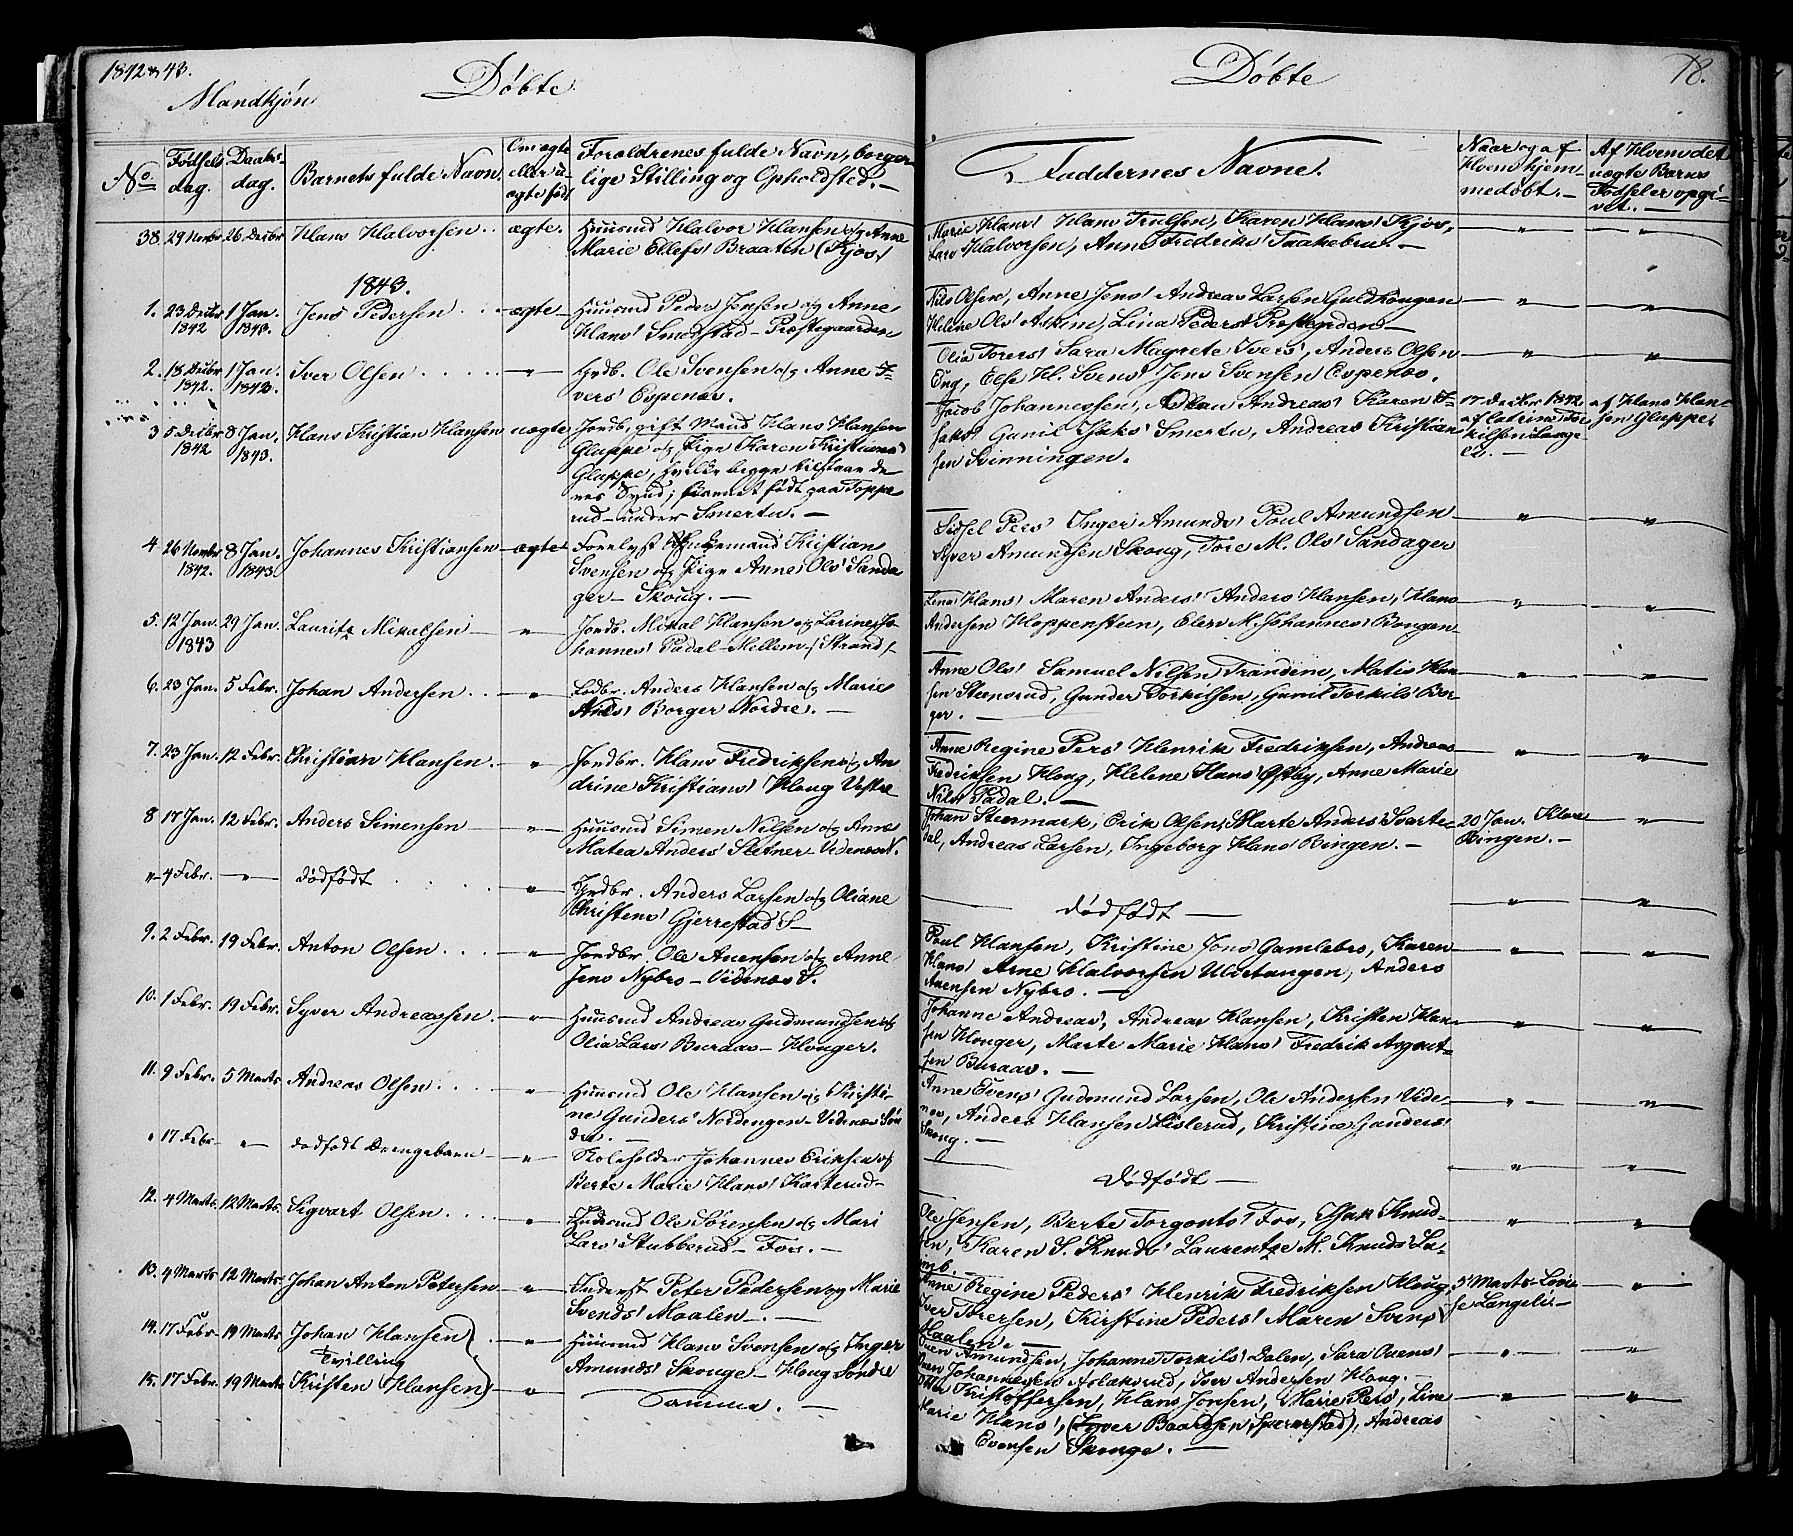 1842 & 43.
Mandkjøn
Døbte
No
Fødsels
dag.
Daabs-
dag.
Barnets fulde Navn.
Om ægte
eller u-
ægte født
Forældrenes fulde Navn, borger
lige Stilling og Opholdsted. —
38 29 Novbr 26 Decbr Hans Halvorsen . . ægte. Huusmd Halvor Hansen og Anne
Marie Ellefs' Braaten (Kjos)
1843.
1. 23 Decbr 1 Jan. Jens Pedersen . . . ægte — Huusmd Peder Jensen og Anne
1842 1843. Hans' Smedstad — Præstegaarden
2. 18 Decbr 1 Jan. Iver Olsen . . . . — " — Ole Svensen og Anne I=
1842. 1843. vers' Espenæs.
3 5 Decbr 8 Jan. Hans Kristian Hansen uægte Jordb. gift Mand Hans Hansen
1842 1843. Glappe og Pige Karen Kristians'
Glappe, begge tilstaae de
res Synd; Barnet født paa Toppe
rud — under Smertu. —
4 26 Novbr 8 Jan. Johannes Kristiansen — ægte Kristian
1842. 1843. Svensen og Pige Anne Ols' Sanda
ger — Skoug. —
5. 12 Jan. 29 Jan. Lauritz Mikalsen — " — Jordb. Mikal Hansen og Larine Jo
1843 hannes' Padal — Mellem — (Strand) —
6. 23 Jan. 5 Febr. Johan Andersen . . — " — Anders Hansen og Marie
Borger Nordre. —
7. 23 Jan. 12 Febr. Christian Hansen . — " — Jordbr. Hans Fredriksen og An
drine Kristians' Houg Vestre
8 17 Jan. 12 Febr. Anders Simensen — " — Huusmd Simen Nilsen og Anne
Matea Anders' Sletner — Videnæs N.
" 4 Febr. — " — dødfødt . . . — " — Anders Larsen og Oliane
Christens' Gjerrestad S —
9. 2 Febr. 19 Febr. Anton Olsen . . . — " — Jordbr. Ole Auensen og Anne
Jens Nybro — Videnæs S.
10. 1 Febr. 19 Febr. Syver Andreassen . — " — Huusmd Andreas Gudmundsen og
Olia Lars' Buraas — Houger.
11. 9 Febr. 5 Marts Andreas Olsen . . . " — Huusmd Ole Hansen og Kirsti-
ne Gunders' Nordengen — Videnæs Søn
dre. —
" 17 Febr — " — dødfødt Drengebarn — " — Skoleholder Johannes Eriksen og
Berte Marie Hans' Karterud —
12. 4 Marts. 12 Marts. Sigvart Olsen . . . — " — Ole Sørensen og Mari
Lars' Stubberud — Fos. —
13. 4 Marts 12 Marts. Johan Anton Petersen — " — Inderst Peter Pedersen og Marie
Svends' Maalen —
14. 17 Febr — 19 Marts Johan Hansen . — " — Huusmd Hans Svensen og Inger
Tvilling Amunds' Skouge — Houg Søndre
15. 17 Febr. 19 Marts Kristen Hansen — " — Samme. —
Døbte
78.
Faddernes Navne.
Naar og af
Hvem hjem-
medøbt. —
Af Hvem det
uægte Barns
Fødsel er opgi-
vet. —
Marie Hans' Hans Trulsen, Karen Hans' Kjos, — " — — " —
Lars Halvorsen, Anne Fredriks' Taakebru. —
Nils Olsen, Anne Jens' Andreas Larsen Guldkongen — " — — " —
Helene Ols' Askim, Lina Peders' —
Olia Tores' Sara Magrete Ivers', Anders Olsen — " — — " —
Eng, Else H. Svens' Jens Svensen Espenæs.
Jacob Johannessen, Andreas' Karen I= 17 Decbr 1842 af Hans Han
saks' Gunil Isaks' Smertu, Andreas Kristian af Catrine Tor sen Glappe.
sen Svinningen. kilsen Lange
—
Sidsel Pers' Inger Amunds' Poul Amundsen — " — — " —
Syver Amundsen Skoug, Tore M. Ols' Sandager
Lina Hans' Maren Anders' Anders Hansen, Hans — " — — " —
Andersen Kloppensteen, Elen M. Johannes' Borgen
Anne Ols' Samuel Nilsen Tranden, Matis Han — " — — " —
sen Steensrud, Gunder Torkilsen, Gunil Torkils' Bor-
ger. —
Anne Regine Pers' Henrik Fredriksen, Andreas — " — — " —
Fredriksen Houg, Helene Hans' Østby, Anne Marie
Nils' Padal. —
Johan Steenmark, Erik Olsen, Marte Anders' Svarte- 20 Jan. — " —
dal, Andreas Larsen, Ingeborg Hans' Bingen. — Bingen. —
— dødfødt — — " — — " —
Poul Hansen, Kristine Jens' Gamlebro, Karen — " — — " —
Hans' Arne Halvorsen Ulvetangen, Anders
Auensen Nybro. —
Johanne Andreas', Andreas Hansen, Kristen Han- — " — — " —
sen Houger, Marte Marie Hans' Fredrik
sen Buraas. —
Anne Evens' Gudmund Larsen, Ole Andersen Vide- — " — — " —
næs, Anders Hansen Lislerud, Kristine Gunders'
Skoug. —
— dødfødt — — " — — " —
Ole Jensen, Berte Torgouts' Fos, Isak Knud- — " — — " —
sen, Karen S. Knuds' Laurentze M. Knuds'
Anne Regine Peders' Henrik Fredriksen Houg, 5 Marts — Lovi — " —
Iver Toresen, Kirstine Peders' Maren Svens' se Langeli —
Maalen. —
Even Amundsen, Johanne Torkils' Dalen, Sara Ouens' — " — — " —
Ouen Johannesen Aslaksrud, Iver Andersen Houg. —
Kristoffersen, Hans Jonsen, Marie Pers', Line — " — — " —
Marie Hans', (Syver Baardsen, ), Andreas
Evensen Skouge. —